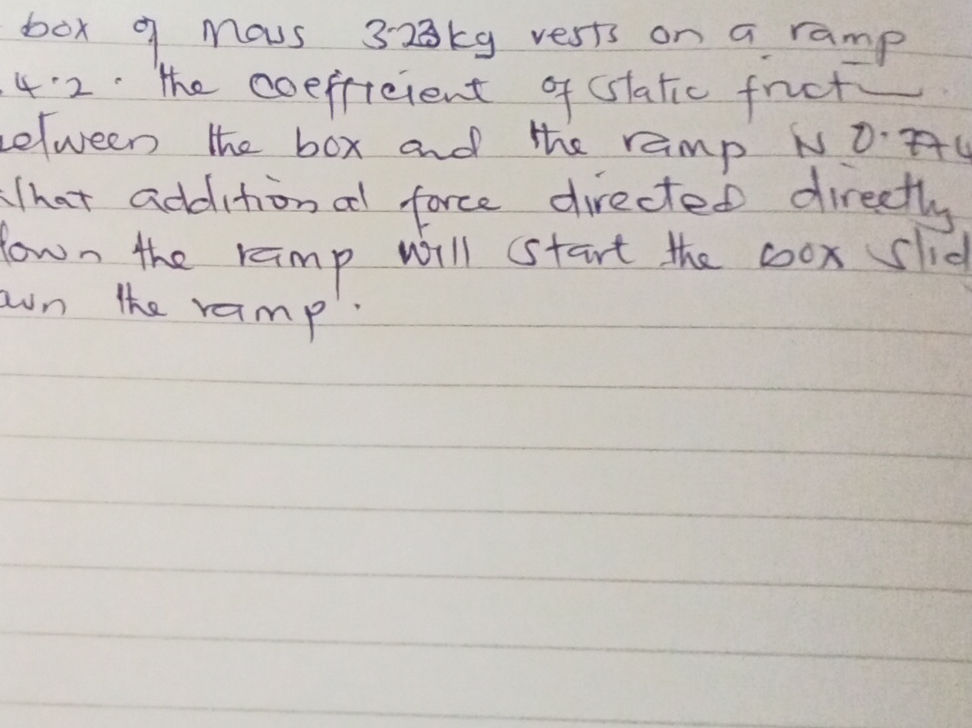 box of mass 3.23kg rests on a ramp
4.2. the coefficient of static frict
etween the box and the ramp is 0.774
hat additional force directed directly
down the ramp will start the box slid
own the ramp.